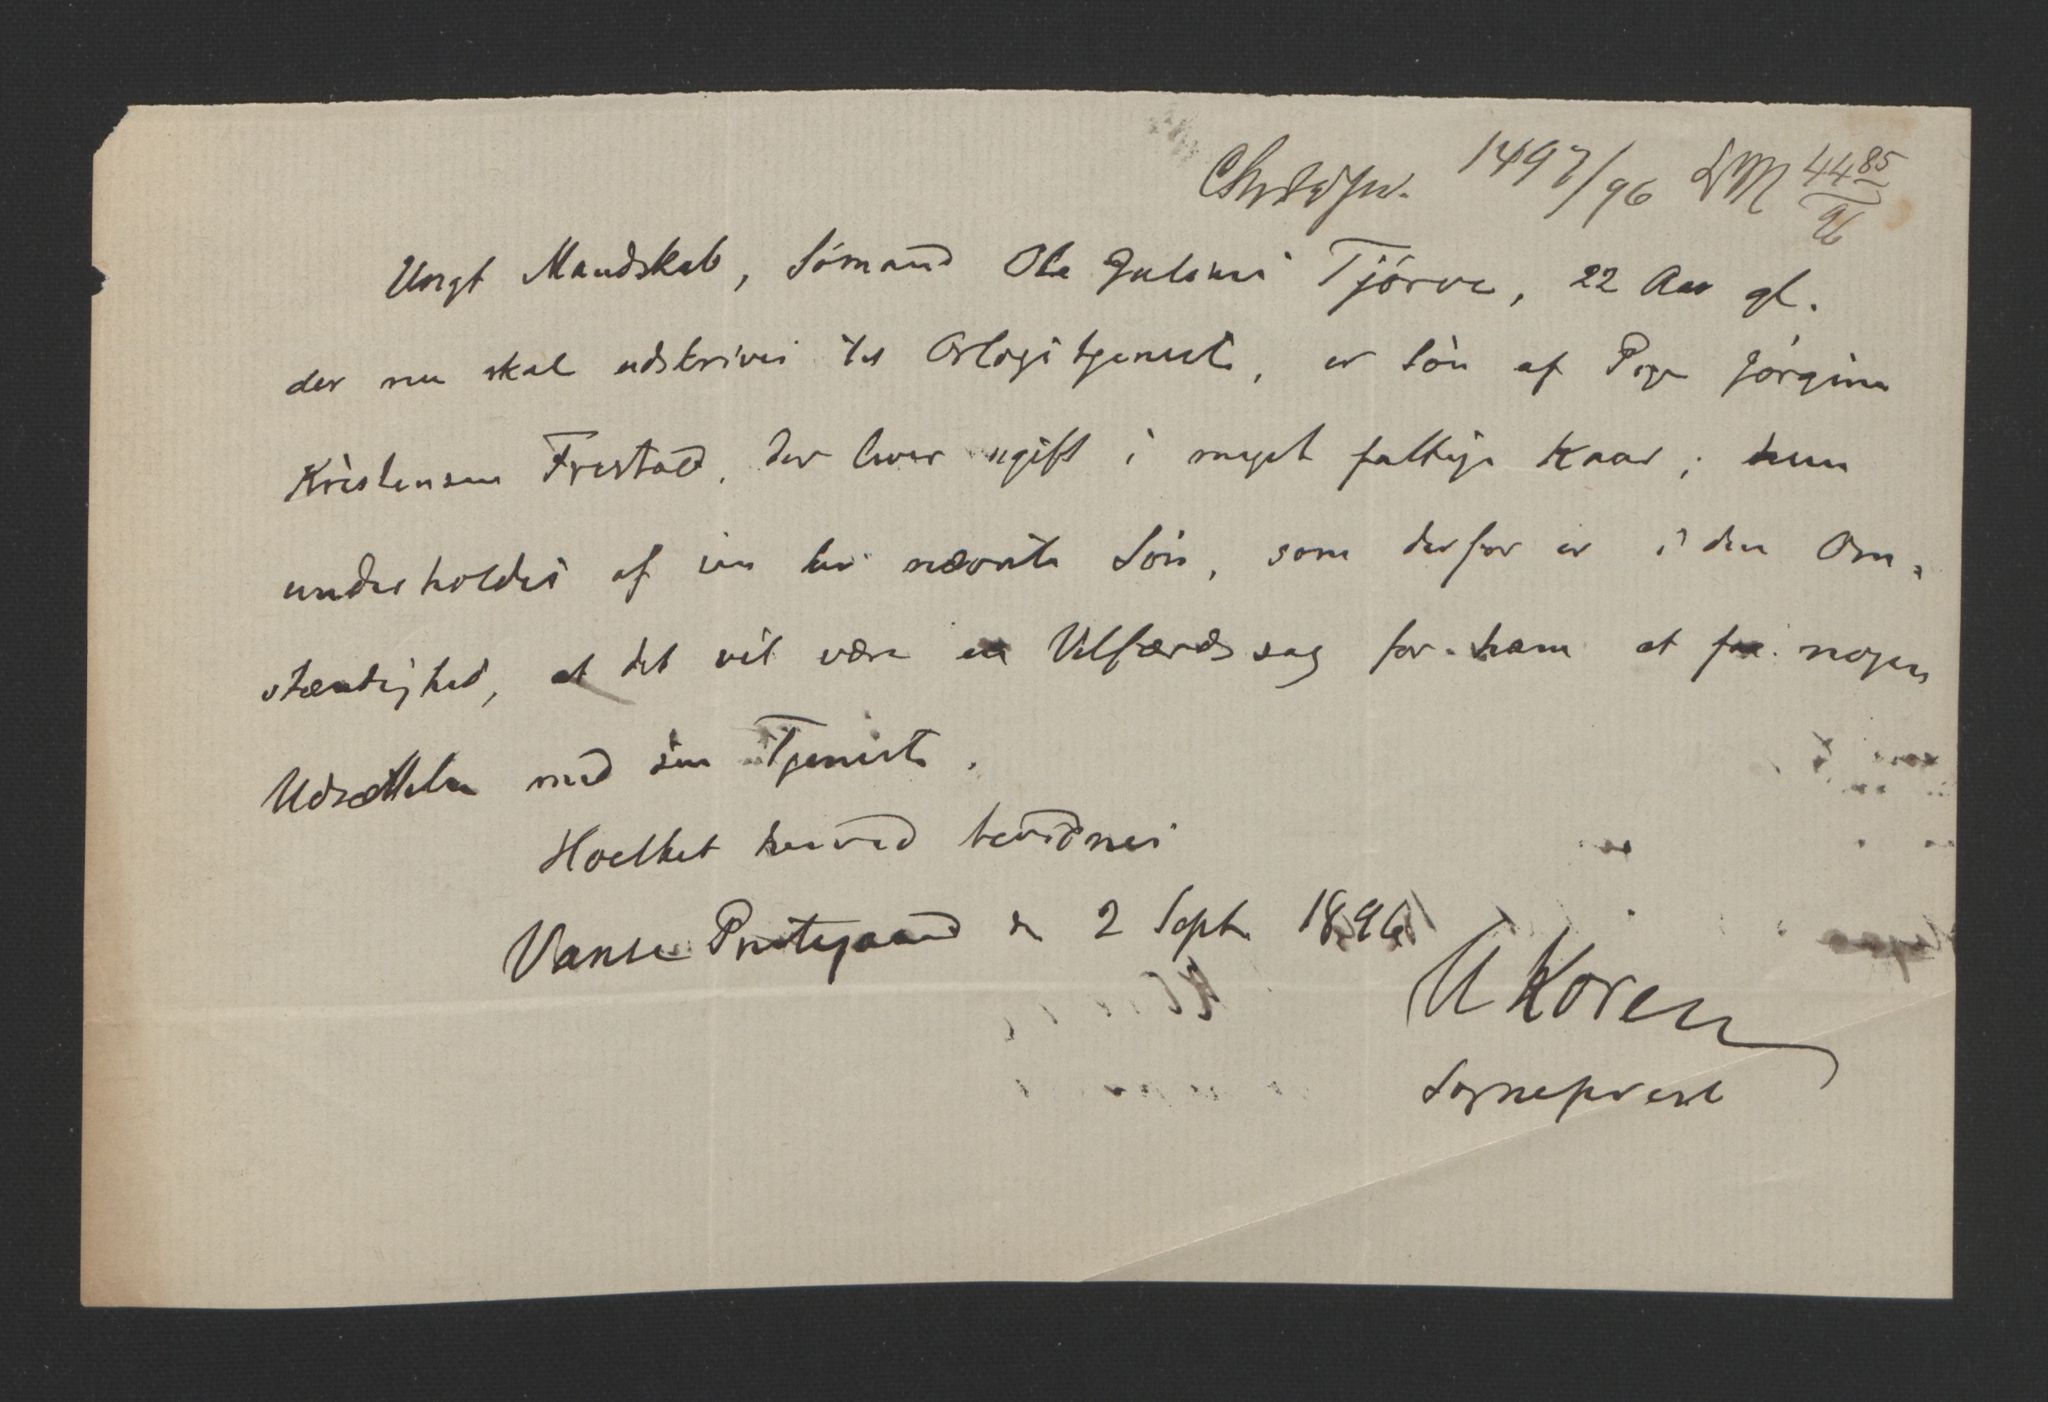 1497/96 DM 4485/96
Ungt Mandskab, Sömand Ole Julius Tjörve, 22 Aar gl.
der nu skal udskrives til Orlogstjeneste, er Sön af Pige Jörgine
Kristensen Frestad, der lever ugift i meget fattige Kaar; hun
underholdes af sin her nævnte Sön, som derfor er i den Om-
stændighed, at det vil være en Velfærdssag for ham at faa nogen
Udsættelse med sin Tjeneste.
Hvilket herved bevidnes
Vanse Prestegaard d 2 Sept. 1896
U Koren
Sogneprest